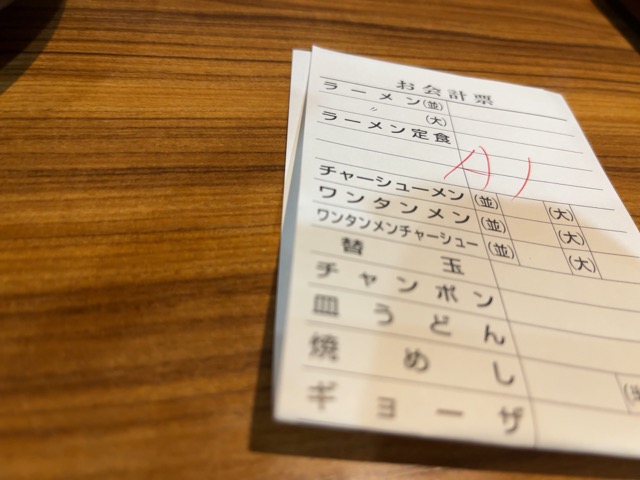 お会計票
ラーメン(並)
〃 (大)
ラーメン定食
A 1
チャーシューメン (並) (大)
ワンタンメン (並) (大)
ワンタンメンチャーシュー (並) (大)
替玉
チャンポン
皿うどん
焼めし
ギョーザ